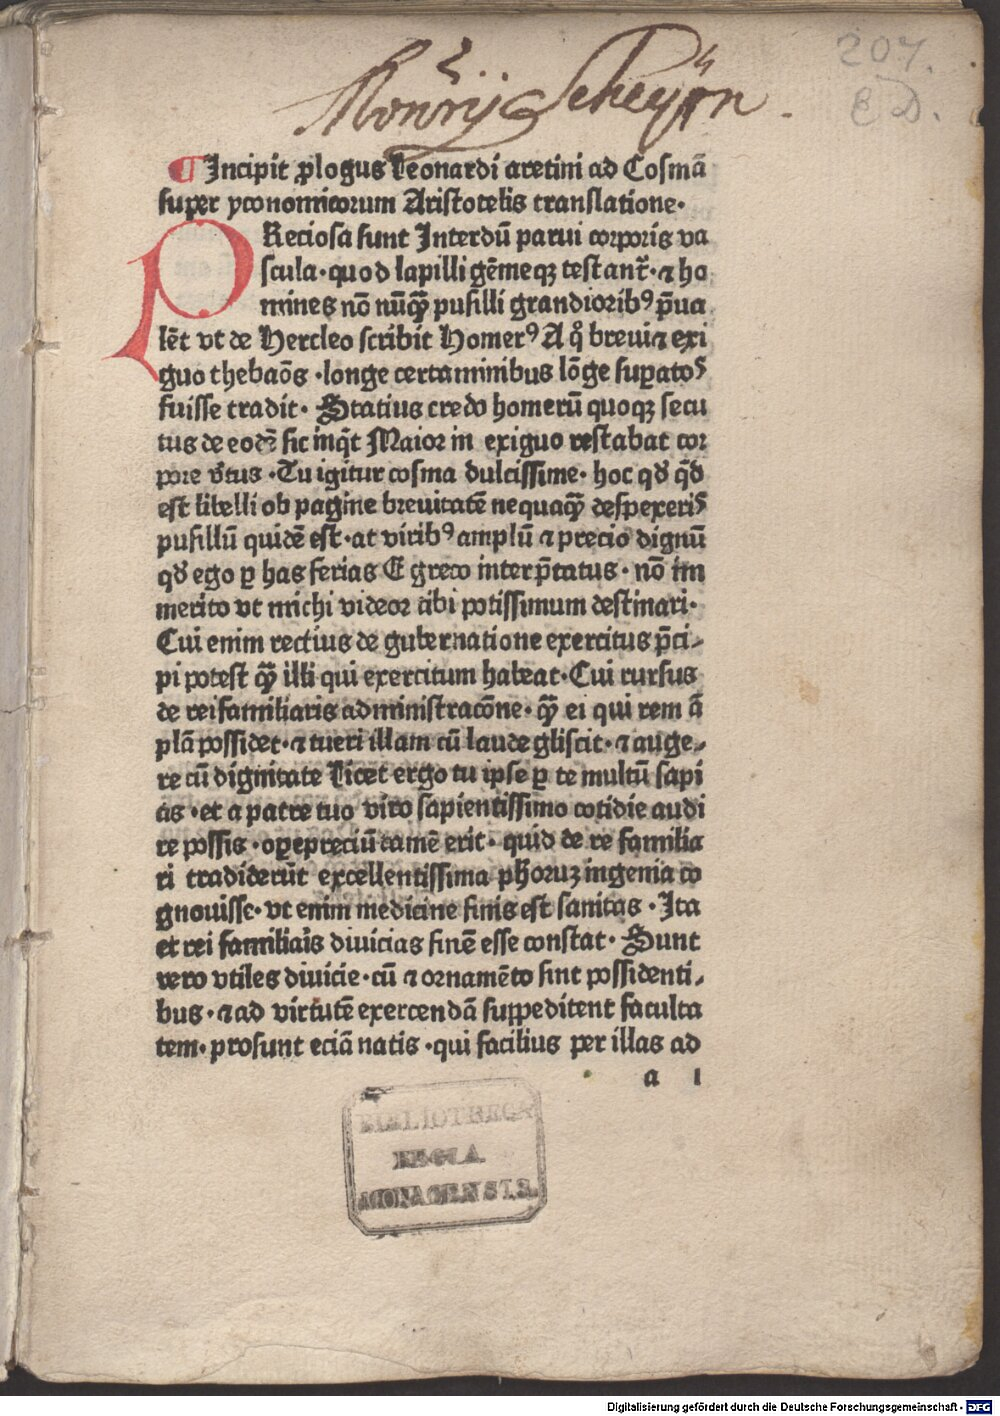 207.
Monrij Scheyrn.
¶Incipit ꝓlogus Leonardi aretini ad Cosmā
super yconomicorum Aristotelis translatione·
PReciosa sunt Interdū parui corporis va
scula·quod lapilli gēmeqꝫ testant᷑·⁊ ho
mines nō nūqꝫ̄ pusilli grandiorib⁹ p̄ua
lēt vt de Hercleo scribit Homer⁹ A qͦ breui⁊ exi
guo thebaōs ·longe certaminibus lōge suꝑato⁵
fuisse tradit· Statius credo homerū quoqꝫ secu
tus de eodē sic inq̄t Maior in exiguo restabat cor
pore v̄tus ·Tu igitur cosma dulcissime· hoc qđ q̄d
est libelli ob pagine breuitatē nequaqꝫ̄ despexeri⁵
pusillū quidē est·at virib⁹ amplū ⁊ precio dignū
qđ ego ꝑ has ferias E greco interp̄tatus· nō im
merito vt michi videor tibi potissimum destinari·
Cui enim rectius de gubernatione exercitus p̄ci-
pi potest qꝫ̄ illi qui exercitum habeat·Cui rursus
de rei familiaris administracōne· qꝫ̄ ei qui rem ā
plā possidet·⁊ tueri illam cū laude gliscit·⁊ auge-
re cū dignitate Licet ergo tu ipse ꝑ te multū sapi
as ·et a patre tuo viro sapientissimo cotidie audi
re possis ·oꝑepreciū tamē erit· quid de re familia
ri tradiderūt excellentissima pħoruꝫ ingenia co
gnouisse·vt enim medicine finis est sanitas ·Ita
et rei familiaīs diuicias finē esse constat· Sunt
vero vtiles diuicie·cū ⁊ ornamēto sint possidenti-
bus·⁊ ad virtutē exercendā suppeditent faculta
tem·prosunt eciā natis ·qui facilius per illas ad
a 1
BIBLIOTHECA
REGIA
MONACENSIS.
Digitalisierung gefördert durch die Deutsche Forschungsgemeinschaft · DFG